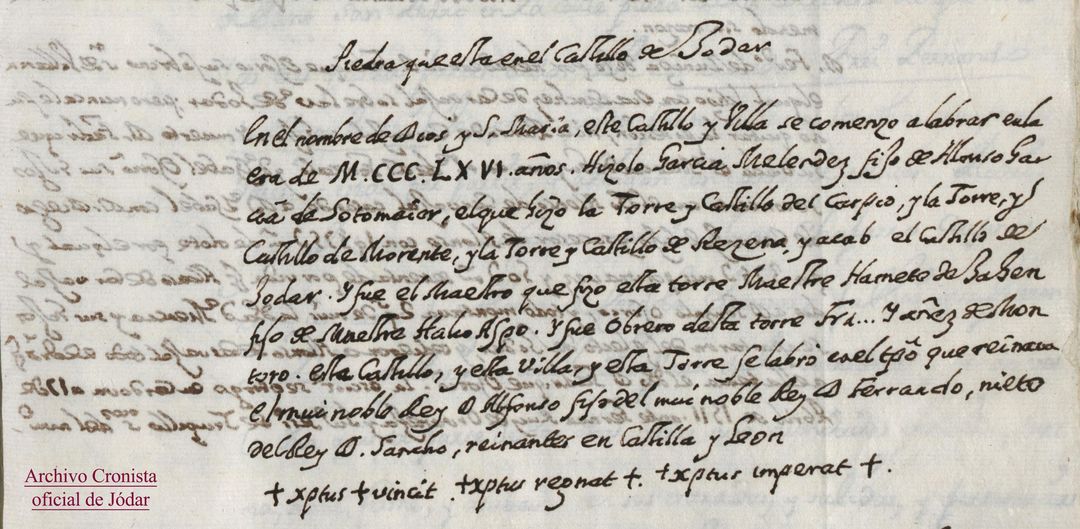 Piedra que esta en el Castillo de Jodar
En el nombre de Dios, y S. Maria, este Castillo y Villa se comenzo a labrar en la
era de M.CCC.LXVI. años. Hizolo Garcia Melendez fijo de Alonso Gar
cia de Sotomaior, el que hizo la Torre y Castillo del Carpio, y la Torre, y
Castillo de Morente, y la Torre y Castillo de Rezena, y acab el Castillo de
Jodar. Y fue el Maestro que fizo esta torre Maestre Hamete de
fijo de Maestre. Y fue Obrero desta torre Fru... Yañez de Mon
toro. Esta Castillo, y esta Villa, y esta Torre se labró en el tpõ que reinava
el mui noble Rey D. Alfonso fijo del mui noble Rey D. Ferrando, nieto
del Rey D. Sancho, reinantes en Castilla y Leon
† xptus † vincit. † xptus regnat †. † xptus imperat †.
Archivo Cronista
oficial de Jódar